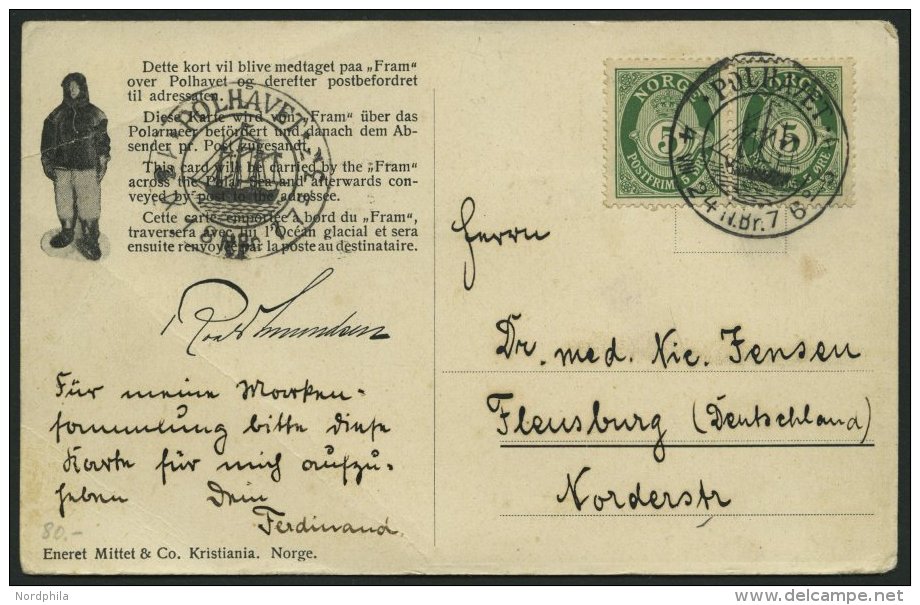 Dette kort vil blive medtaget paa „Fram"
over Polhavet og derefter postbefordret
til adressaten.
Diese Karte wird von „Fram" über das
Polarmeer befördert und danach dem Ab-
sender pr. Post zugesandt.
This card will be carried by the „Fram"
across the Polar Sea and afterwards con-
veyed by post to the adressee.
Cette carte, emportée à bord du „Fram",
traversera avec lui l'Océan glacial et sera
ensuite renvoyée par la poste au destinataire.
POLHAVET
Roald Amundsen
Für meine Marken-
sammlung bitte diese
Karte für mich aufzu-
heben Dein
Ferdinand.
80.-
Eneret Mittet & Co. Kristiania. Norge.
NORGE
5 5
POLHAVET
4 VIII 24 N.Br. 76
Herrn
Dr. med. Nic. Jensen
Flensburg (Deutschland)
Norderstr
Nordphila
delcampe.net